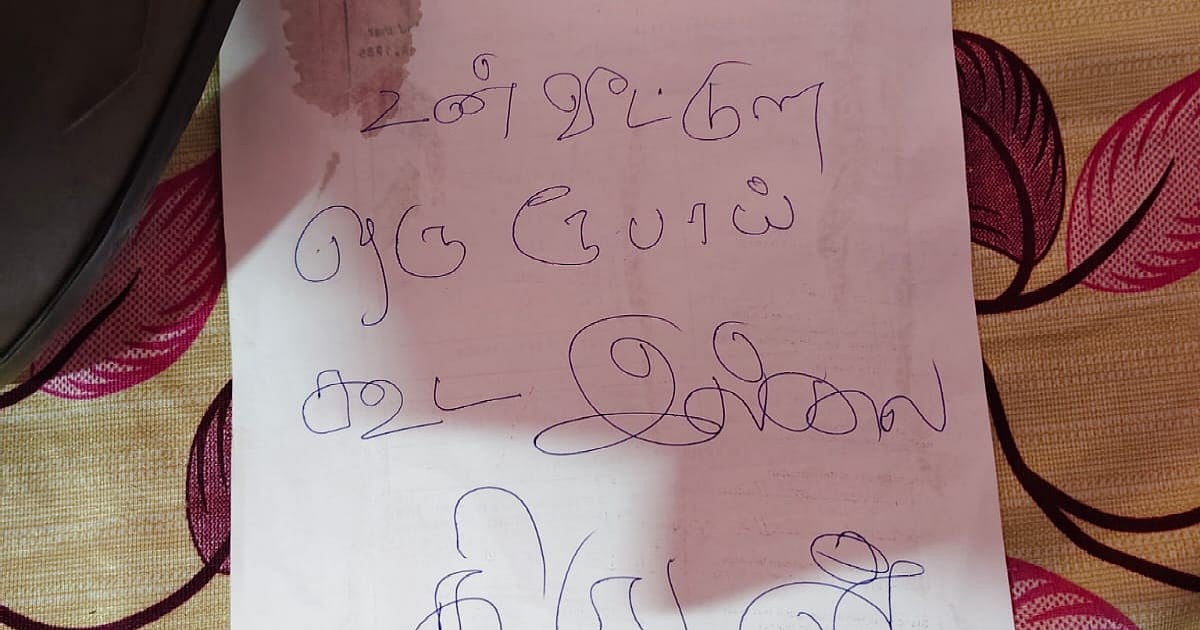 உன் வீட்டுல
ஒரு ரூபாய்
கூட இல்லை